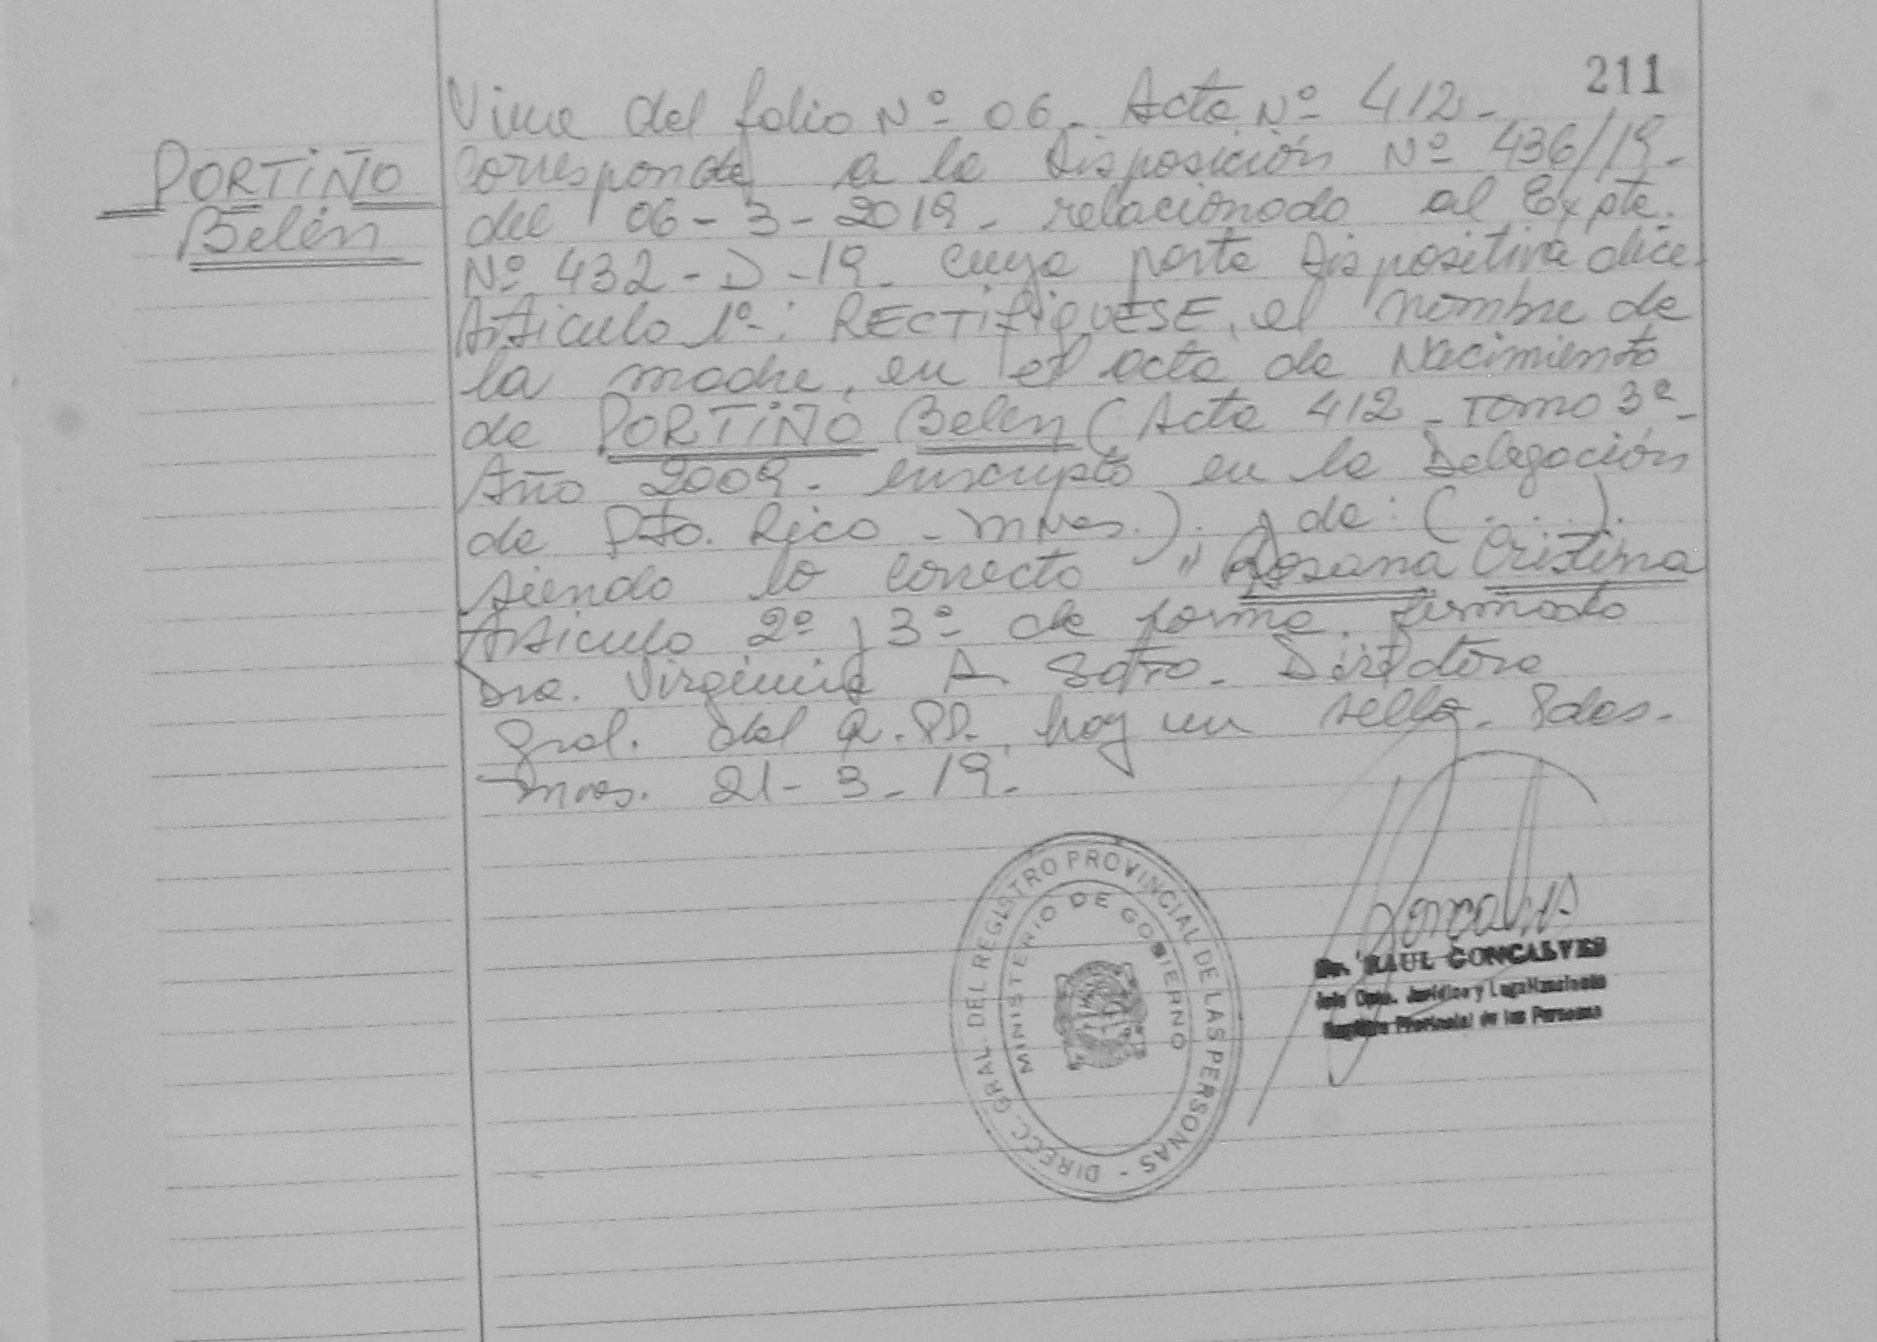 211
PORTIÑO
Belén
Viene del folio Nº 06. Acta Nº 412-
Corresponde a la Disposición Nº 436/19-
del 06-3-2019- relacionado al Expte.
Nº 432-D-19- cuya parte dispositiva dice:
Articulo 1º-: RECTIFIQUESE, el nombre de
la madre, en el acta de Nacimiento
de PORTIÑO Belén (Acta 412 - Tomo 3º-
Año 2009- inscripto en la Delegación
de Pto. Rico - Mnes.). de: (....).
siendo lo correcto "Rosana Cristina
Articulo 2º y 3º de forma. firmado
Dra. Virginia A Soto. Directora
Gral. del R.PP. hay un sello. Pdas.
Mnes. 21-3-19-
DIRECC. GRAL. DEL REGISTRO PROVINCIAL DE LAS PERSONAS -
MINISTERIO DE GOBIERNO
Goncalves
Dr. RAUL GONCALVES
Jefe Dpto. Jurídico y Legalizaciones
Registro Provincial de las Personas